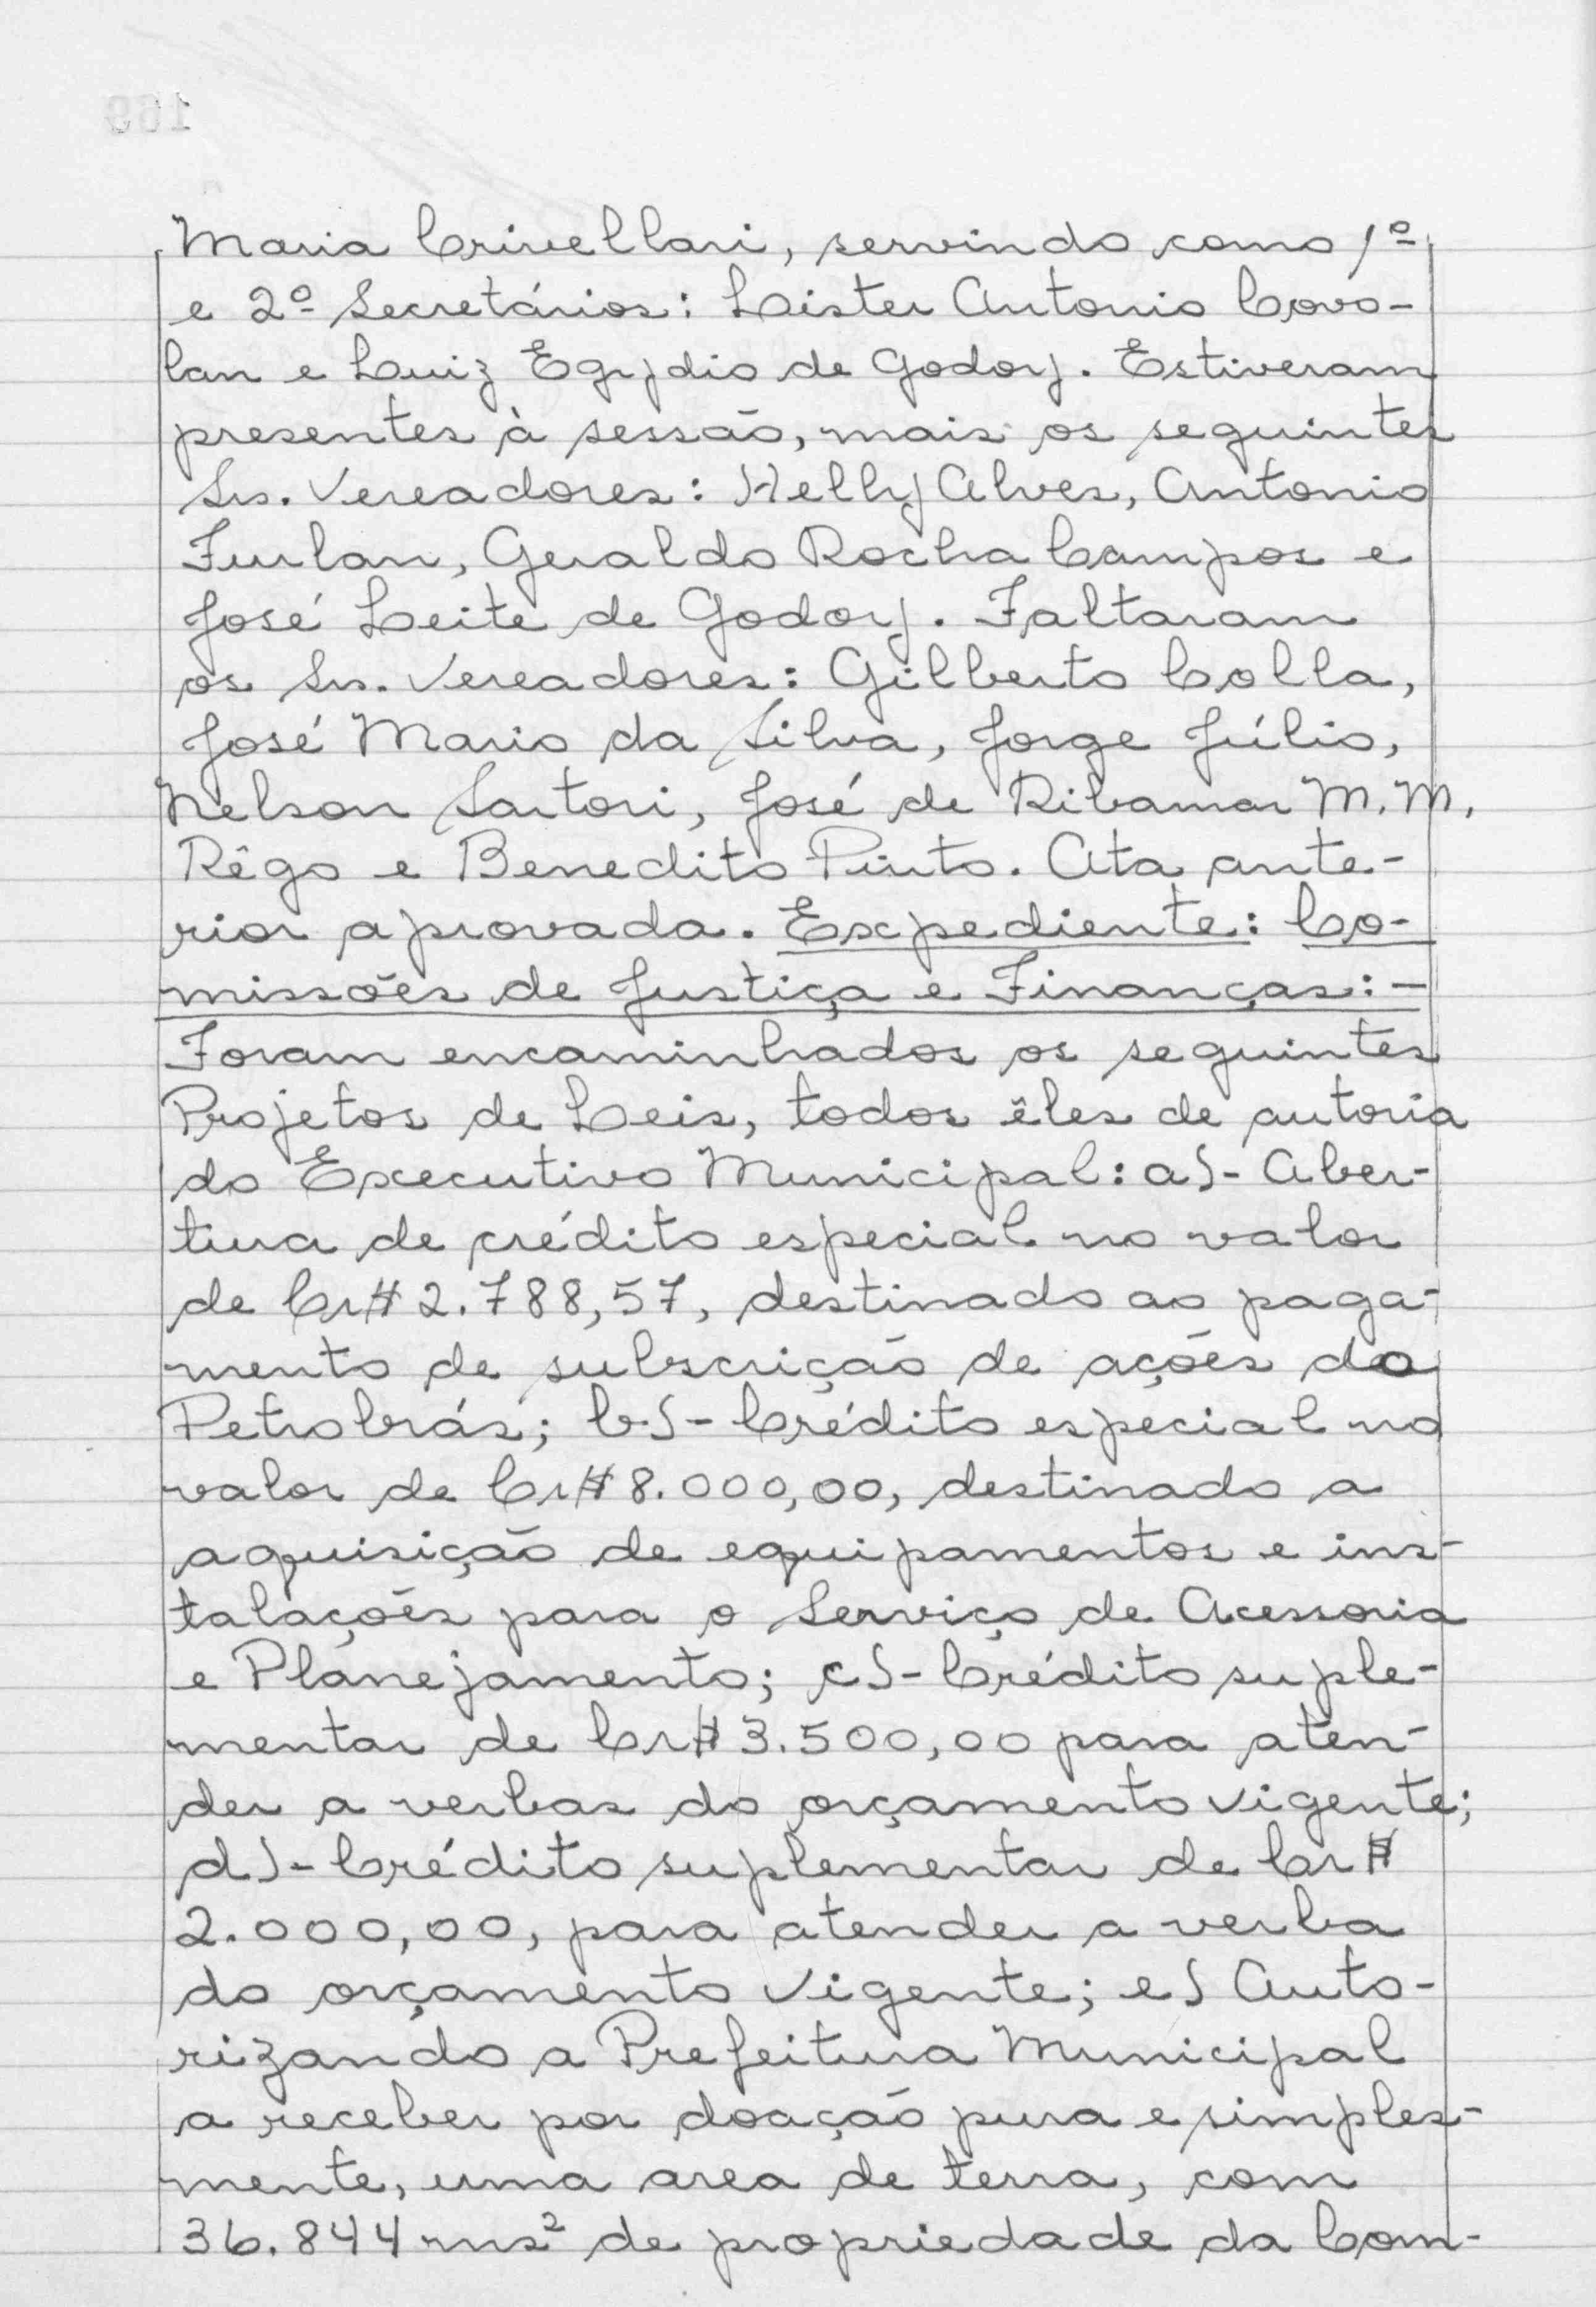 Maria Crivellari, servindo como 1º
e 2º Secretários: Lister Antonio Covo-
lan e Luiz Egydio de Godoy. Estiveram
presentes à sessão, mais os seguintes
Srs. Vereadores: Helly Alves, Antonio
Furlan, Geraldo Rocha Campos e
José Leite de Godoy. Faltaram
os Srs. Vereadores: Gilberto Colla,
José Mario da Silva, Jorge Júlio,
Nelson Sartori, José de Ribamar M. M.
Rêgo e Benedito Pinto. Ata ante-
rior aprovada. Expediente: Co-
missões de Justiça e Finanças:-
Foram encaminhados os seguintes
Projetos de Leis, todos êles de autoria
do Executivo Municipal: a)- Aber-
tura de crédito especial no valor
de Cr$ 2.788,57, destinado ao paga-
mento de subscrição de ações da
Petrobrás; b)- Crédito especial no
valor de Cr$ 8.000,00, destinado a
aquisição de equipamentos e ins-
talações para o Serviço de Acessoria
e Planejamento; c)- Crédito suple-
mentar de Cr$ 3.500,00 para aten-
der a verbas do orçamento vigente;
d)- Crédito suplementar de Cr$
2.000,00, para atender a verba
do orçamento vigente; e) Auto-
rizando a Prefeitura Municipal
a receber por doação pura e simples-
mente, uma area de terra, com
36.844 ms² de propriedade da Com-